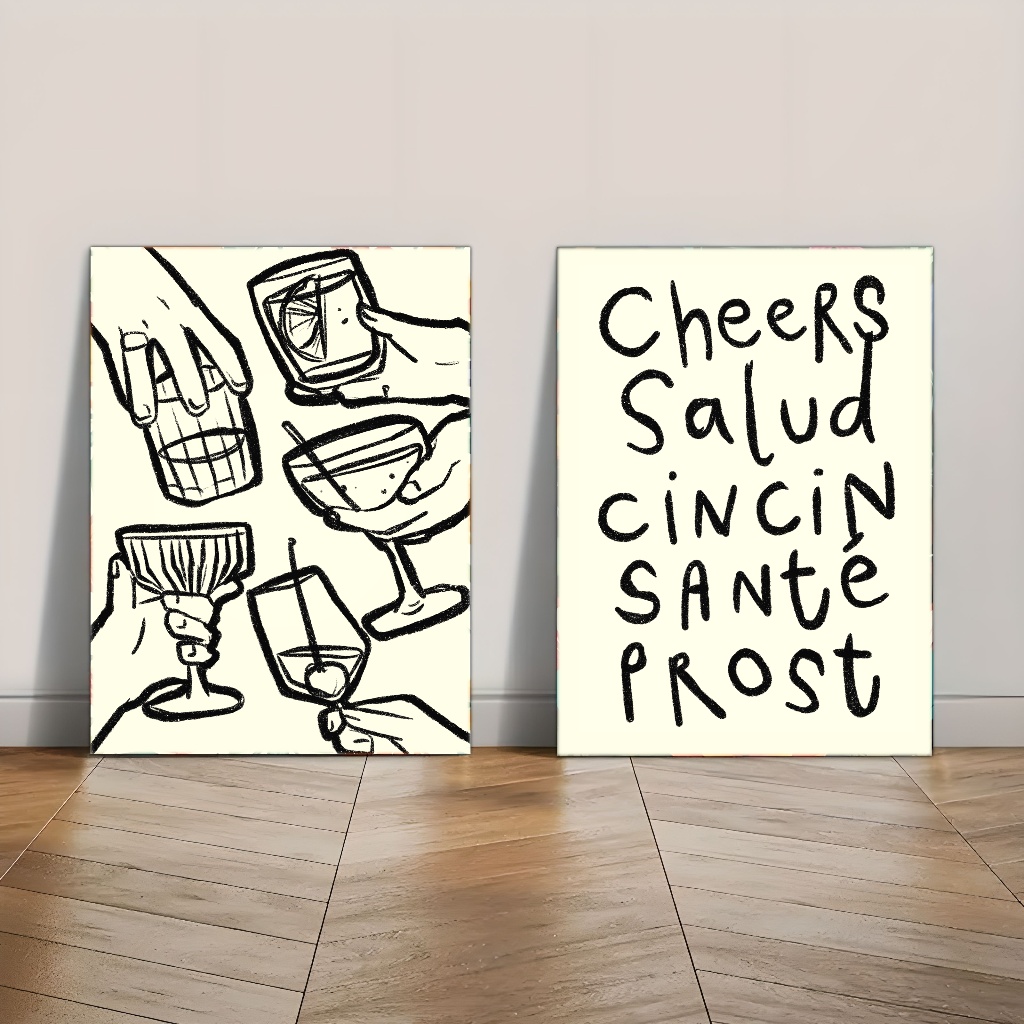 CheeRS
Salud
CiNCiN
SANté
PROSt